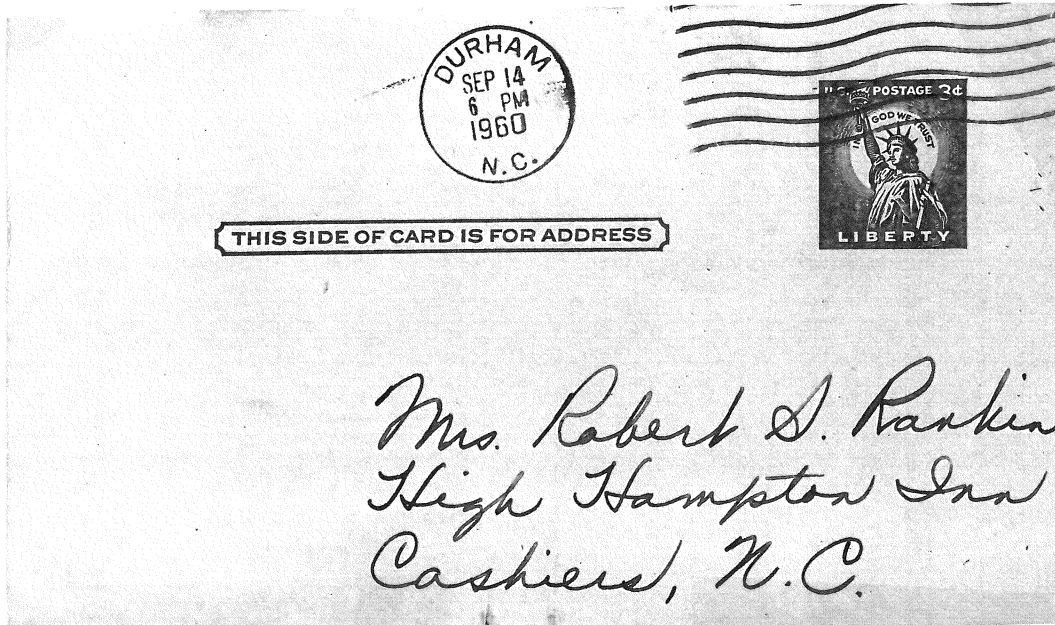 DURHAM
SEP 14
6 PM
1960
N.C.
U.S. POSTAGE 3¢
IN GOD WE TRUST
LIBERTY
THIS SIDE OF CARD IS FOR ADDRESS
Mrs. Robert S. Rankin
High Hampton Inn
Cashiers, N.C.